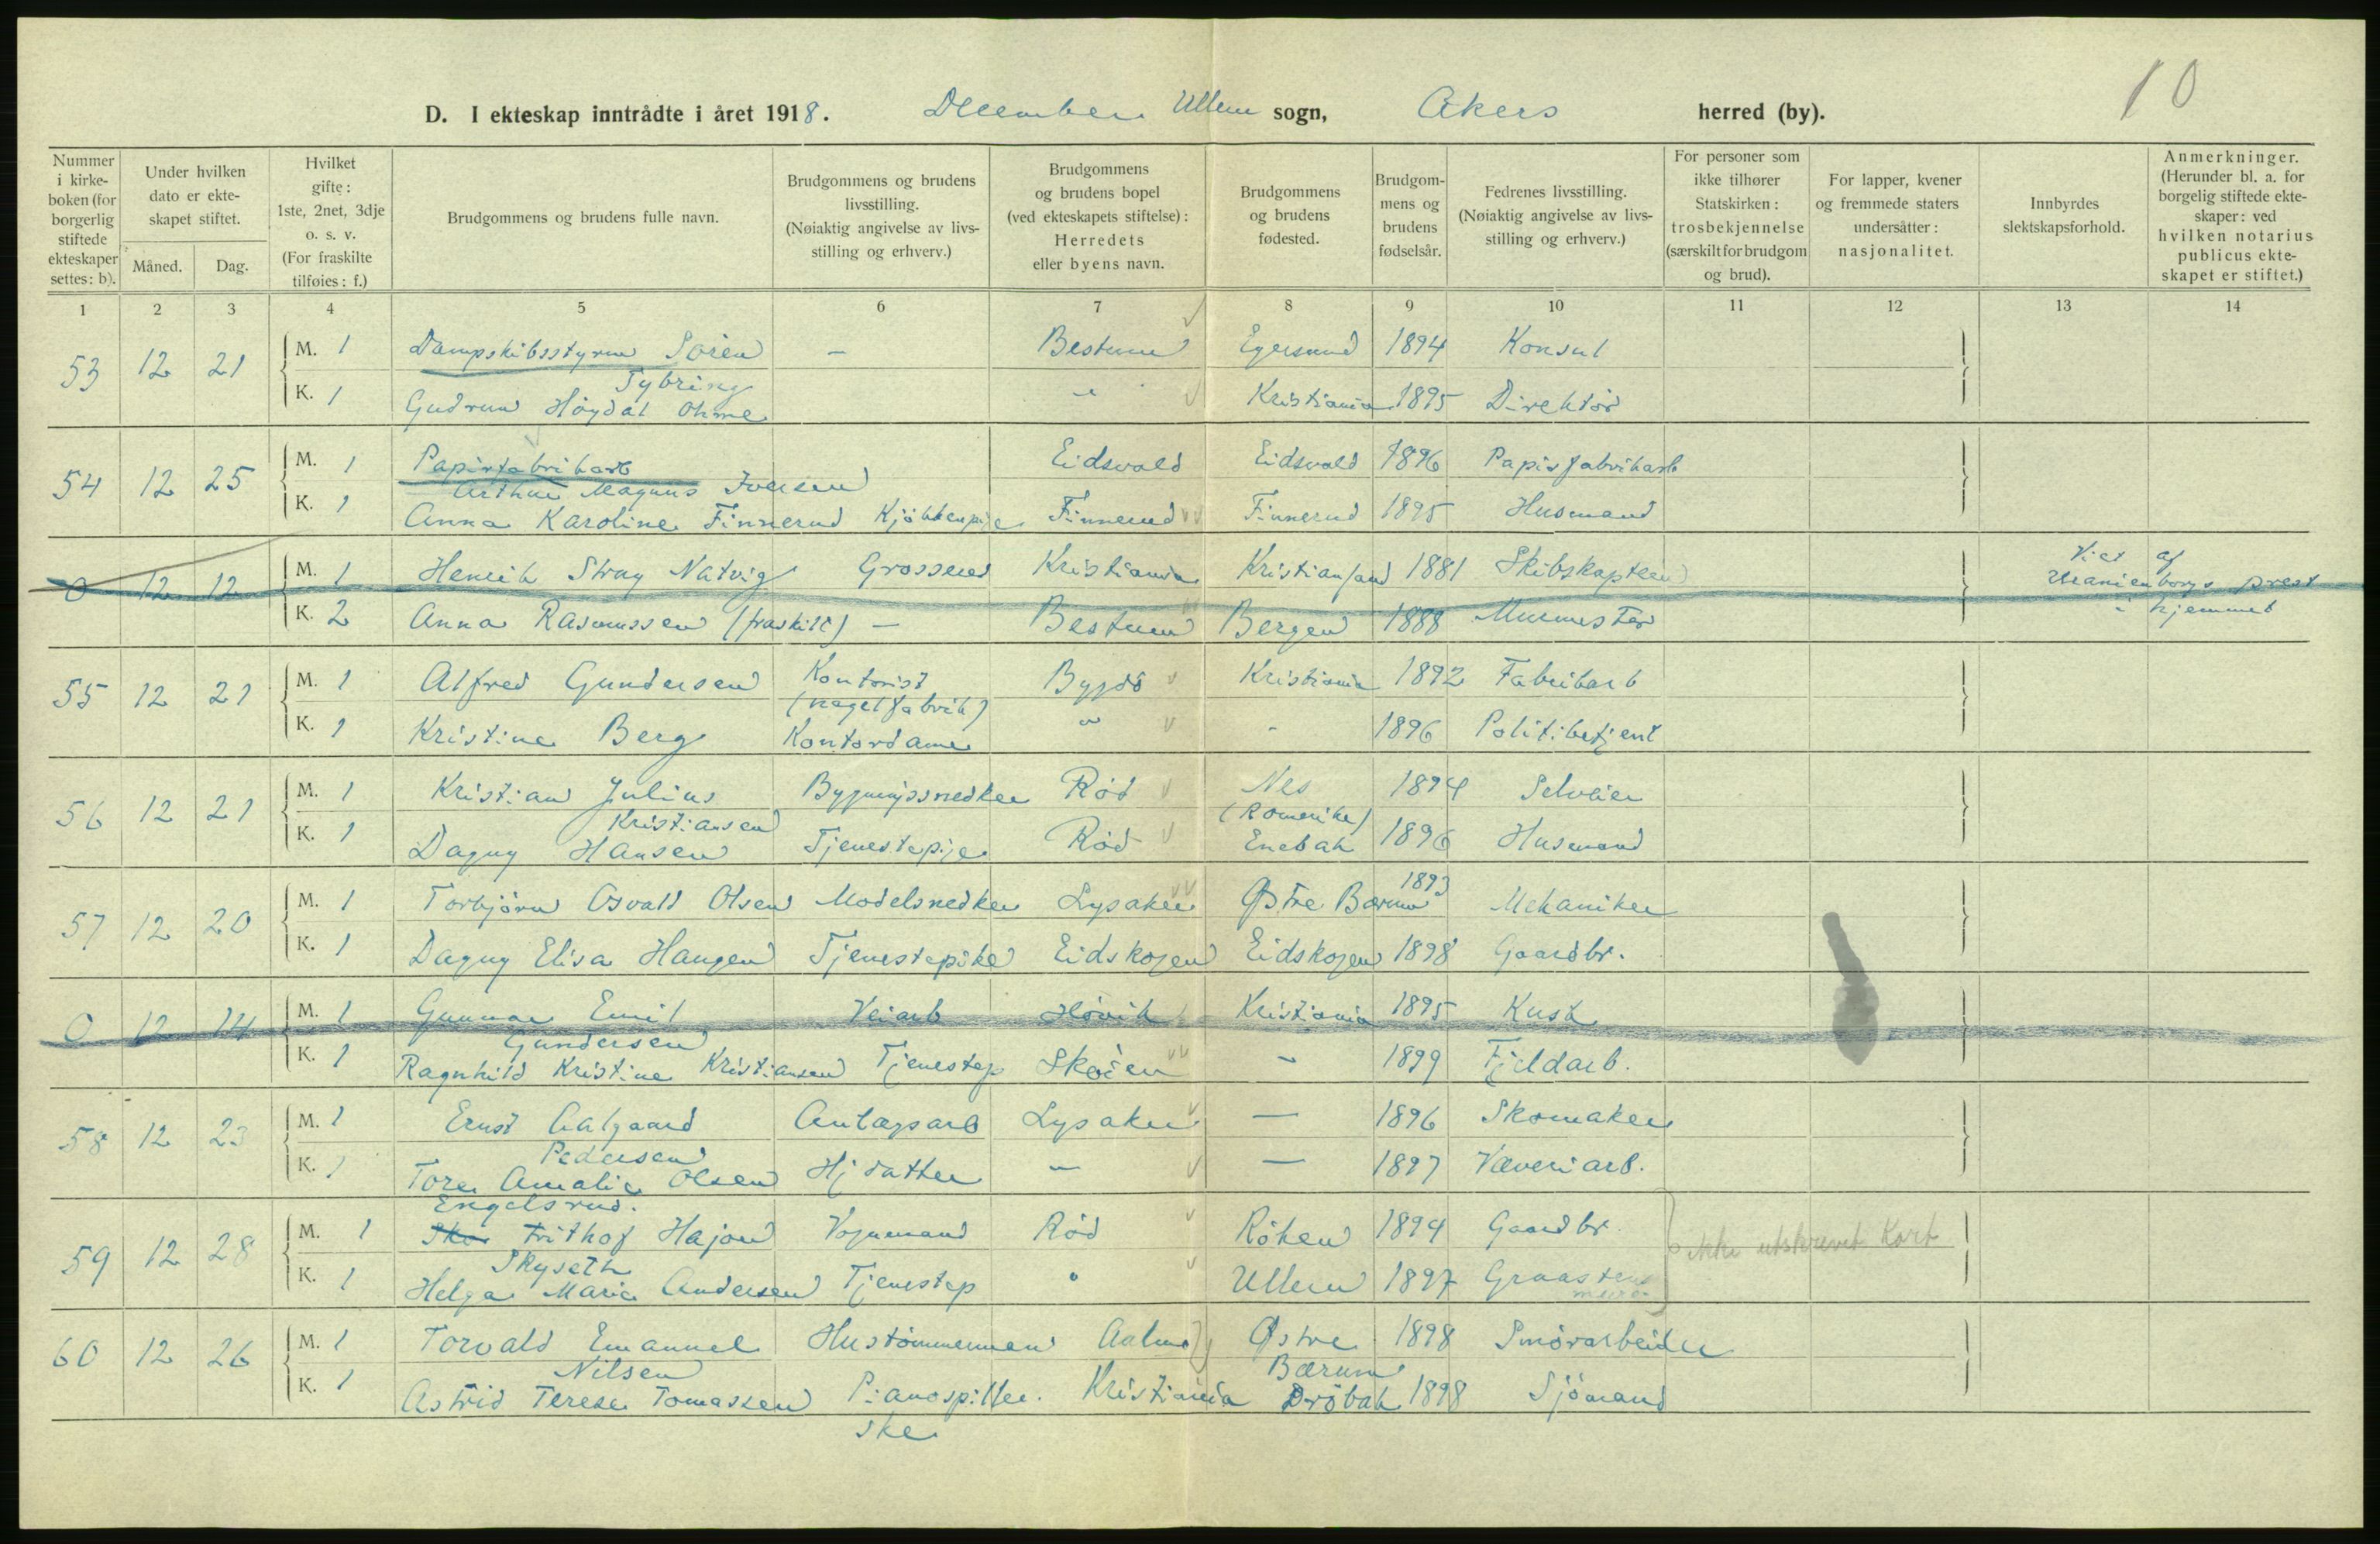 10
D. I ekteskap inntrådte i året 1918. December Ullern sogn, Akers herred (by).
Nummer i kirkeboken (for borgerlig stiftede ekteskaper settes: b).
Under hvilken dato er ekteskapet stiftet.
Måned. Dag.
Hvilket gifte: 1ste, 2net, 3dje o. s. v. (For fraskilte tilføies: f.)
Brudgommens og brudens fulle navn.
Brudgommens og brudens livsstilling. (Nøiaktig angivelse av livsstilling og erhverv.)
Brudgommens og brudens bopel (ved ekteskapets stiftelse): Herredets eller byens navn.
Brudgommens og brudens fødested.
Brudgommens og brudens fødselsår.
Fedrenes livsstilling. (Nøiaktig angivelse av livsstilling og erhverv.)
For personer som ikke tilhører Statskirken: trosbekjennelse (særskilt for brudgom og brud).
For lapper, kvener og fremmede staters undersåtter: nasjonalitet.
Innbyrdes slektskapsforhold.
Anmerkninger. (Herunder bl. a. for borgelig stiftede ekteskaper: ved hvilken notarius publicus ekteskapet er stiftet.)
1 2 3 4 5 6 7 8 9 10 11 12 13 14
53 12 21 M. 1 Dampskibsstyrm Sören Tybring — Bestum Egersund 1894 Konsul
K. 1 Gudrun Höydal Ohme " Kristiania 1895 Direktör
54 12 25 M. 1 Papirfabrikarb Arthur Magnus Iversen Eidsvold Eidsvold 1896 Papirfabrikarb
K. 1 Anna Karoline Finnerud Kjökkenpige Finnerud Finnerud 1895 Husmand
0 12 12 M. 1 Henrik Stray Natvig Grosserer Kristiania Kristiansand 1881 Skibskaptein Viet af Uranienborgs prest i hjemmet
K. 2 Anna Rasmussen (fraskilt) — Bestum Bergen 1888 Murmester
55 12 21 M. 1 Alfred Gundersen Kontorist (nagelfabrik) Bygdö Kristiania 1892 Fabrikarb
K. 1 Kristine Berg Kontordame " - 1896 Politibetjent
56 12 21 M. 1 Kristian Julius Kristiansen Bygningssnedker Röd Nes (Romerike) 1894 Selveier
K. 1 Dagny Hansen Tjenestepige Röd Enebak 1896 Husmand
57 12 20 M. 1 Torbjörn Osvald Olsen Modelsnedker Lysaker Østre Bærum 1893 Mekaniker
K. 1 Dagny Elisa Haugen Tjenestepike Eidskogen Eidskogen 1898 Gaardbr.
0 12 14 M. 1 Gunnar Emil Gundersen Veiarb Hövik Kristiania 1895 Kusk
K. 1 Ragnhild Kristine Kristiansen Tjenestep Skøien - 1899 Fjeldarb.
58 12 23 M. 1 Ernst Aalgaard Pedersen Anlægsarb Lysaker — 1896 Skomaker
K. 1 Tore Amalie Olsen Engelsrud. Hj datter " — 1897 Væveriarb.
59 12 28 M. 1 Skor Frithof Hajon Skyseth Vognmand Röd Röken 1894 Gaardbr.
K. 1 Helga Marie Andersen Tjenestep " Ullern 1897 Graastens murer
ikke utskrevet Kort
60 12 26 M. 1 Torvald Emanuel Nilsen Hustömmerman Østre Bærum 1898 Smörarbeider
K. 1 Astrid Terese Tomassen Pianospillerske Kristiania Dröbak 1898 Sjömand